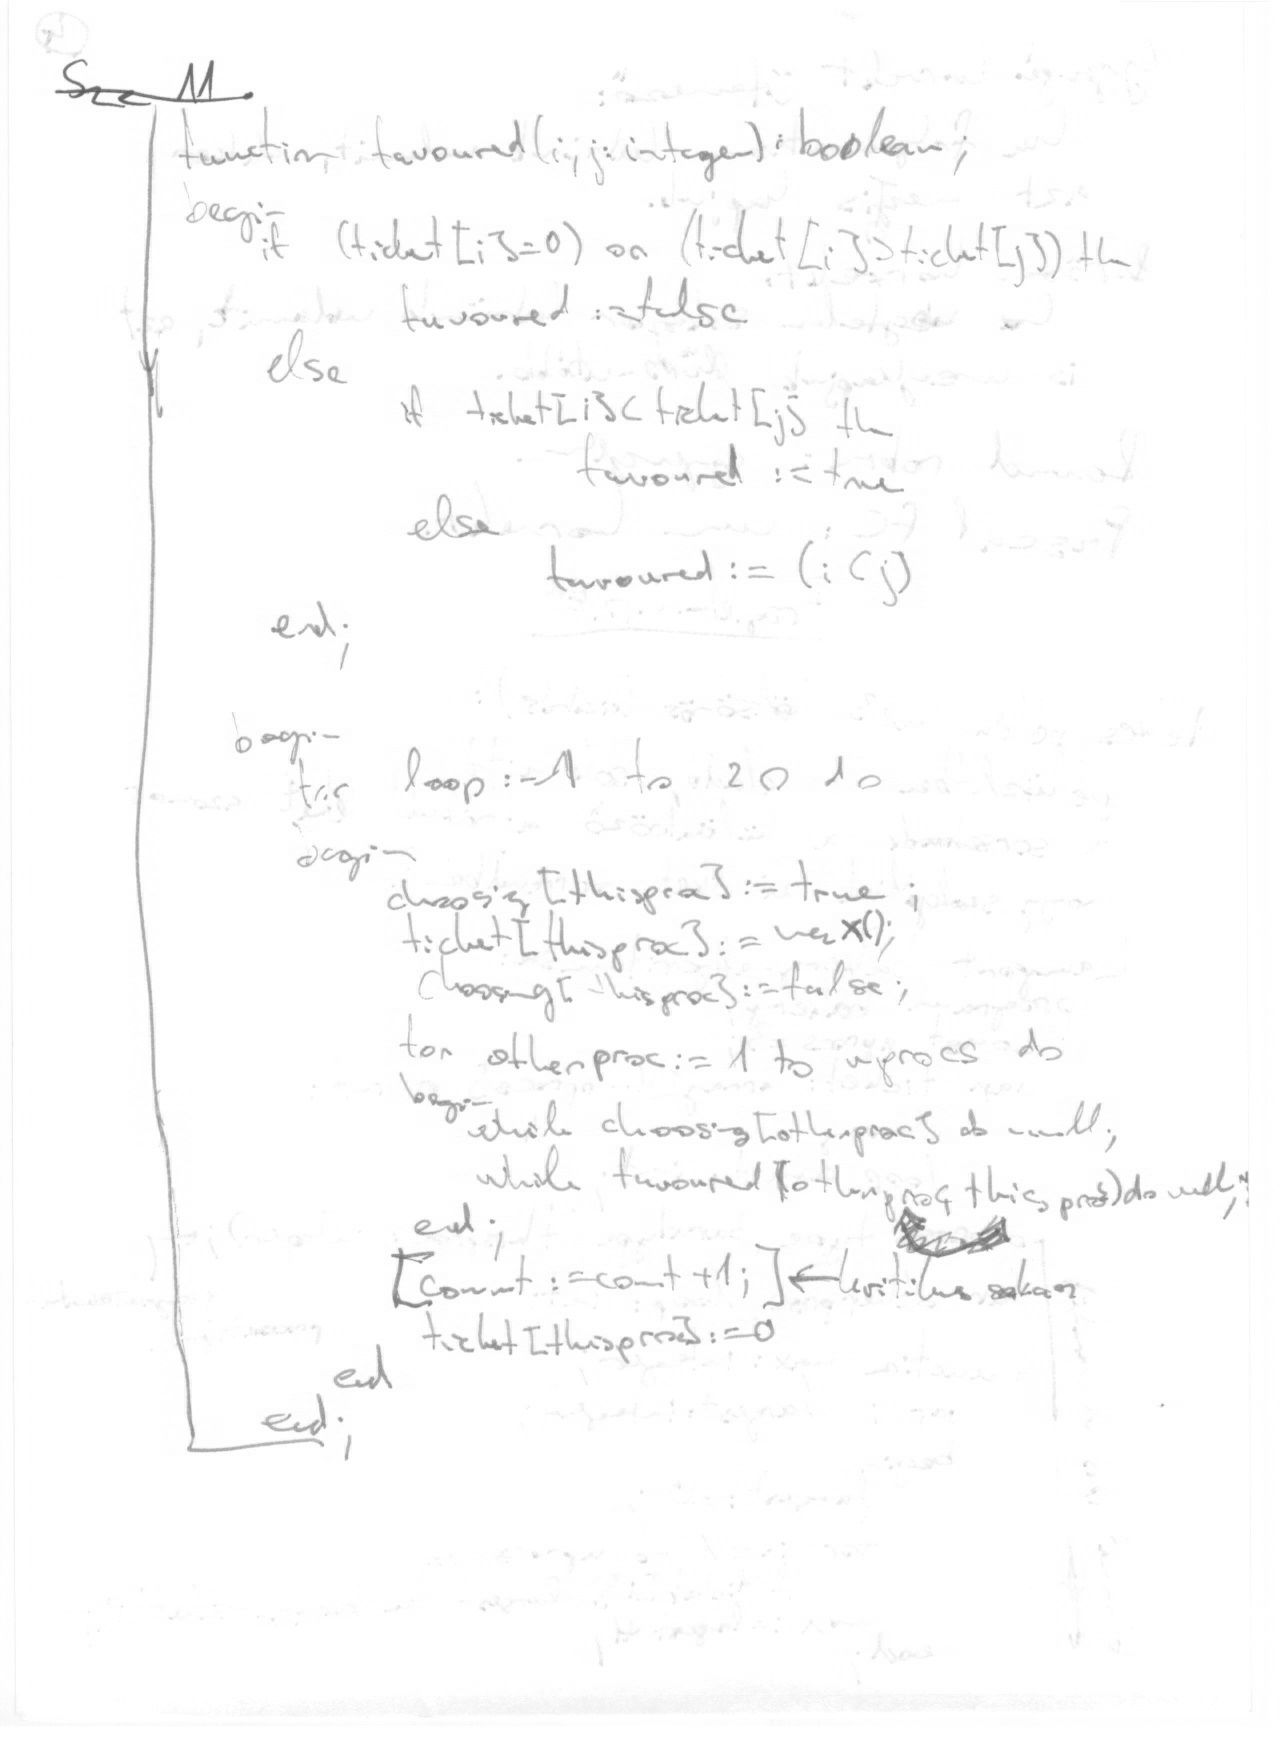 Sze 11.
function favoured(i,j: integer): boolean;
begin
if (ticket[i]=0) or (ticket[i]>ticket[j]) th
favoured :=false
else
if ticket[i]<ticket[j] th
favoured := true
else
favoured := (i<j)
end;
begin
for loop:=1 to 20 do
begin
choosing[thisproc]:= true;
ticket[thisproc]:= max();
choosing[thisproc]:=false;
for otherproc:= 1 to nprocs do
begin
while choosing[otherproc] do null;
while favoured(otherproc, thisproc) do null;
end;
[count :=count +1;] ← kritikus szakasz
ticket[thisproc]:=0
end
end;